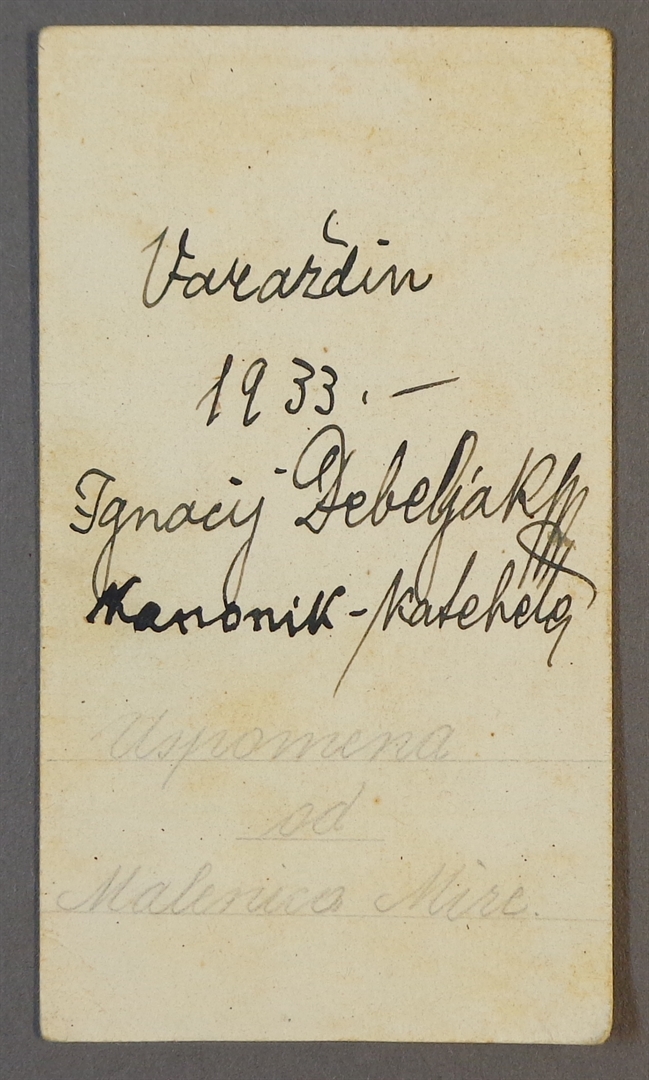 Varaždin
1933. —
Ignacij Debeljak
Kanonik - Kateheta
Uspomena
od
Malenica Mire.